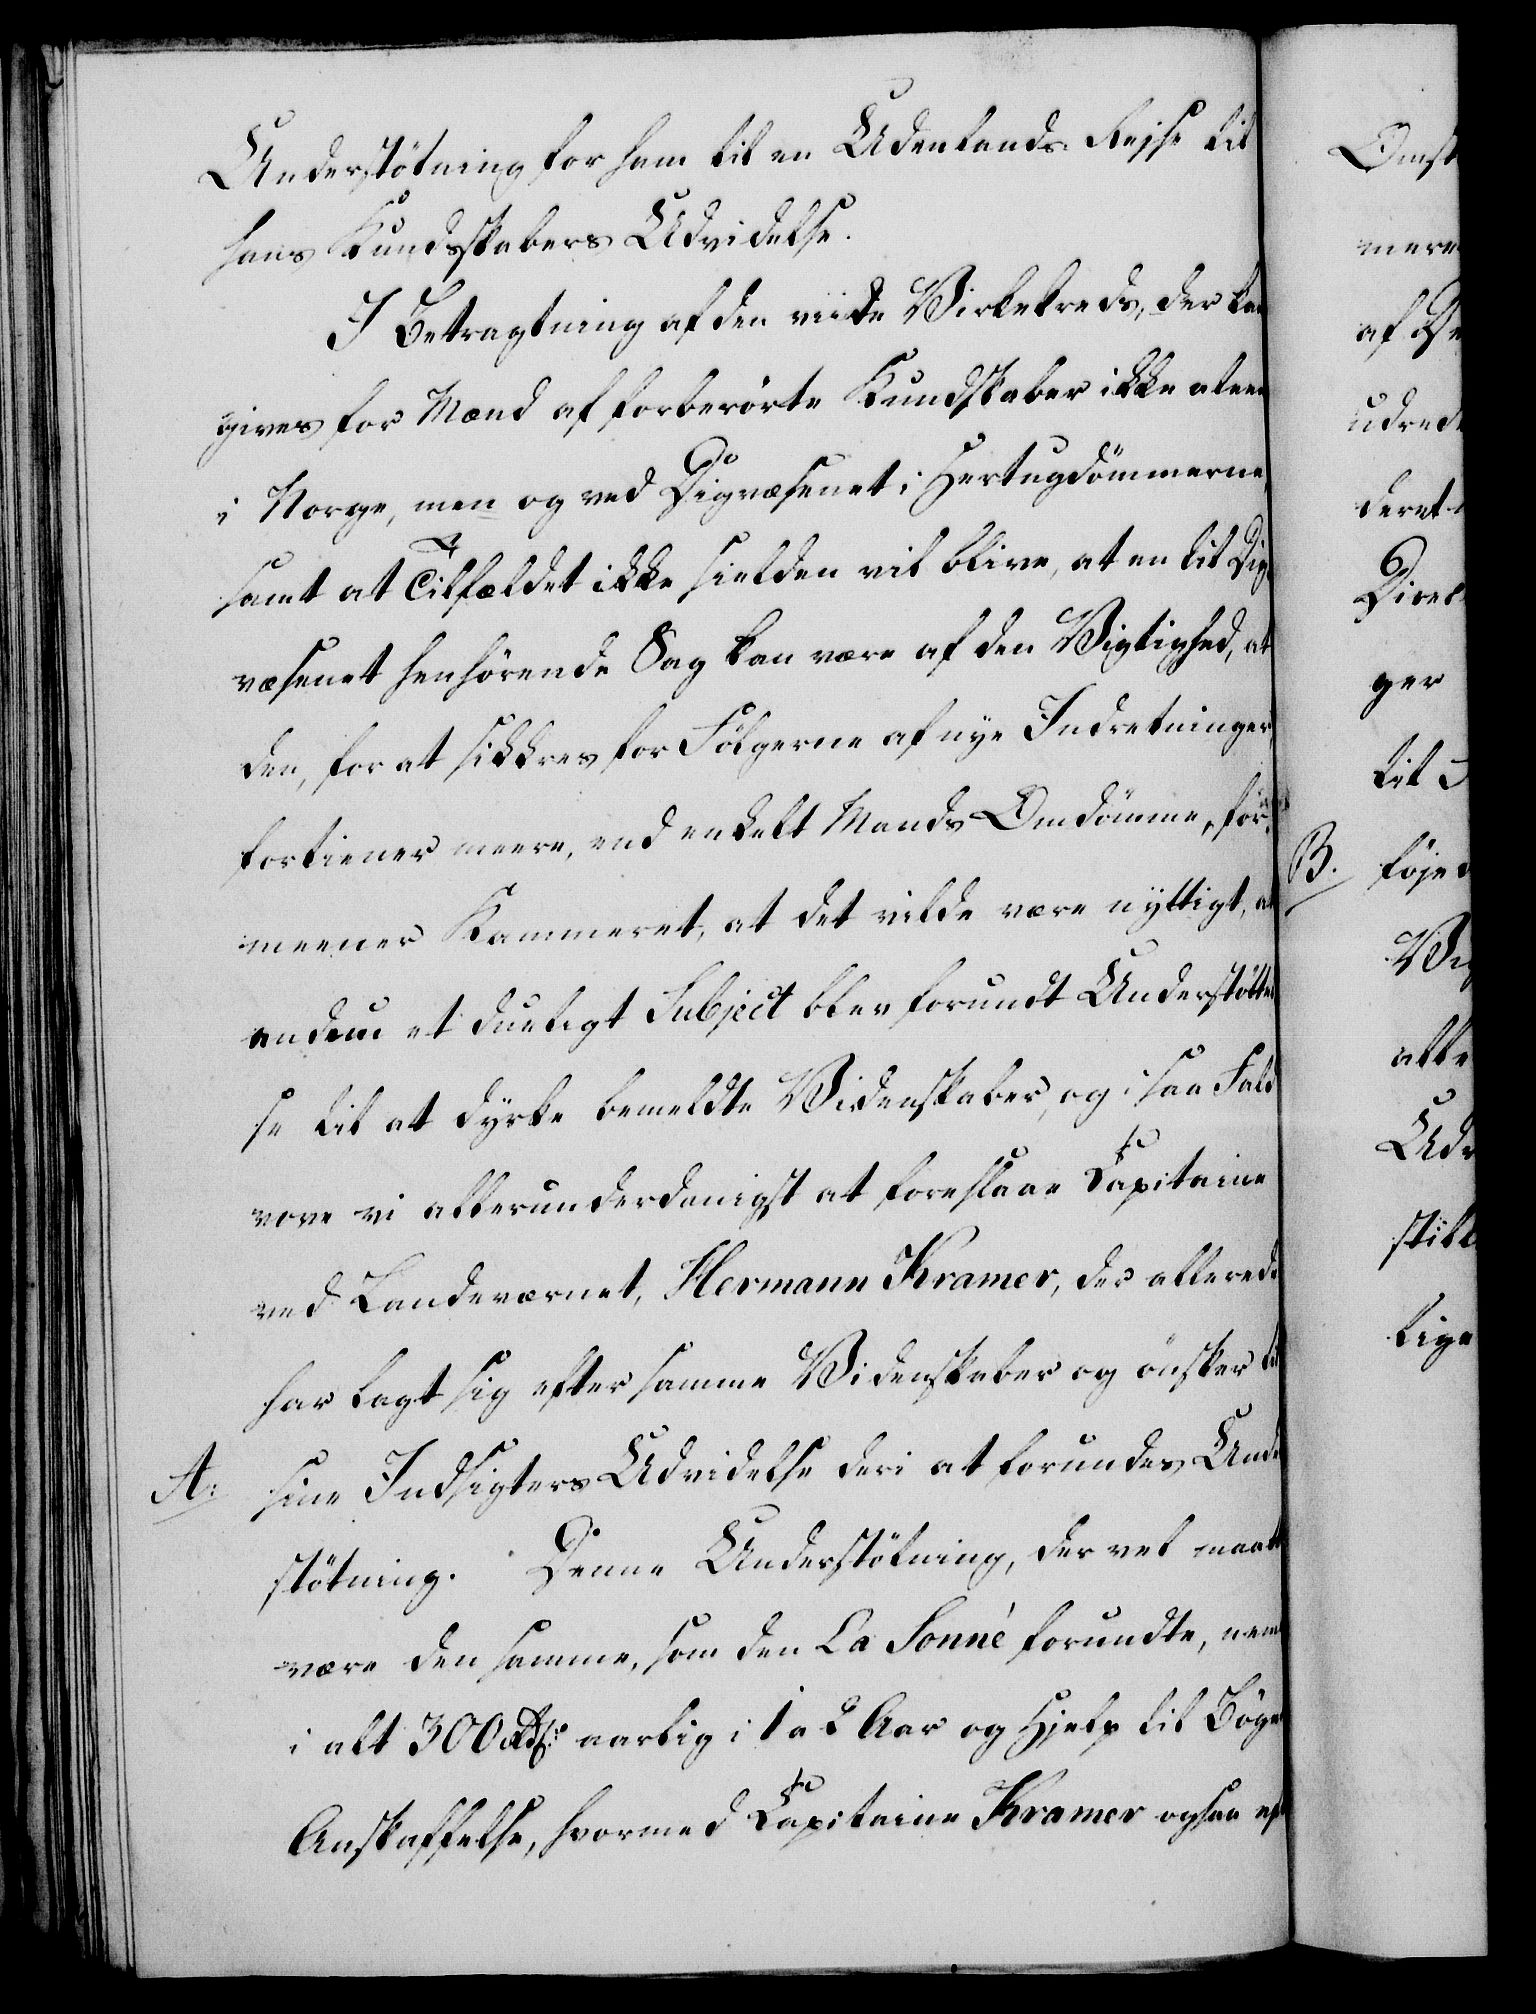 Understøtning for ham til en Udenlands Rejse til
hans Kundskabers Udvidelse.
I Betragtning af den viide Virkekreds, der kan
gives for Mænd af forberørte Kundskaber ikke alene
i Norge, men og ved Digvæsenet i Hertugdømmerne,
samt at Tilfældet ikke sielden vil blive, at en til Dig-
væsenet henhørende Sag kan være af den Vigtighed, at
den, for at sikkres for Følgerne af nye Indretninger,
fortiener meere, end enkelt Mands Omdømme, for-
meener Kammeret, at det vilde være nyttigt, at
endnu et dueligt Subject blev forundt Understøttel-
se til at dyrke bemeldte Videnskaber, og i saa Fald
vove vi allerunderdanigst at foreslaae Capitaine
ved Landeværnet, Hermann Kramer, der allerede
har lagt sig efter samme Videnskaber og ønsker til
A: sine Indsigters Udvidelse deri at forundes Under-
støtning. Denne Understøtning, der vel maatte
være den samme, som den La Sonné forundte, nem-
i alt 300 Rdlr. aarlig i 1 a 2 Aar og Hjelp til Bøgers
Anskaffelse, hvormed Capitaine Kramer ogsaa eft
Omst
mere
af De
udrede
deret
Direk
ger
til
B. føje
Vig
alle
Udv
still
lige